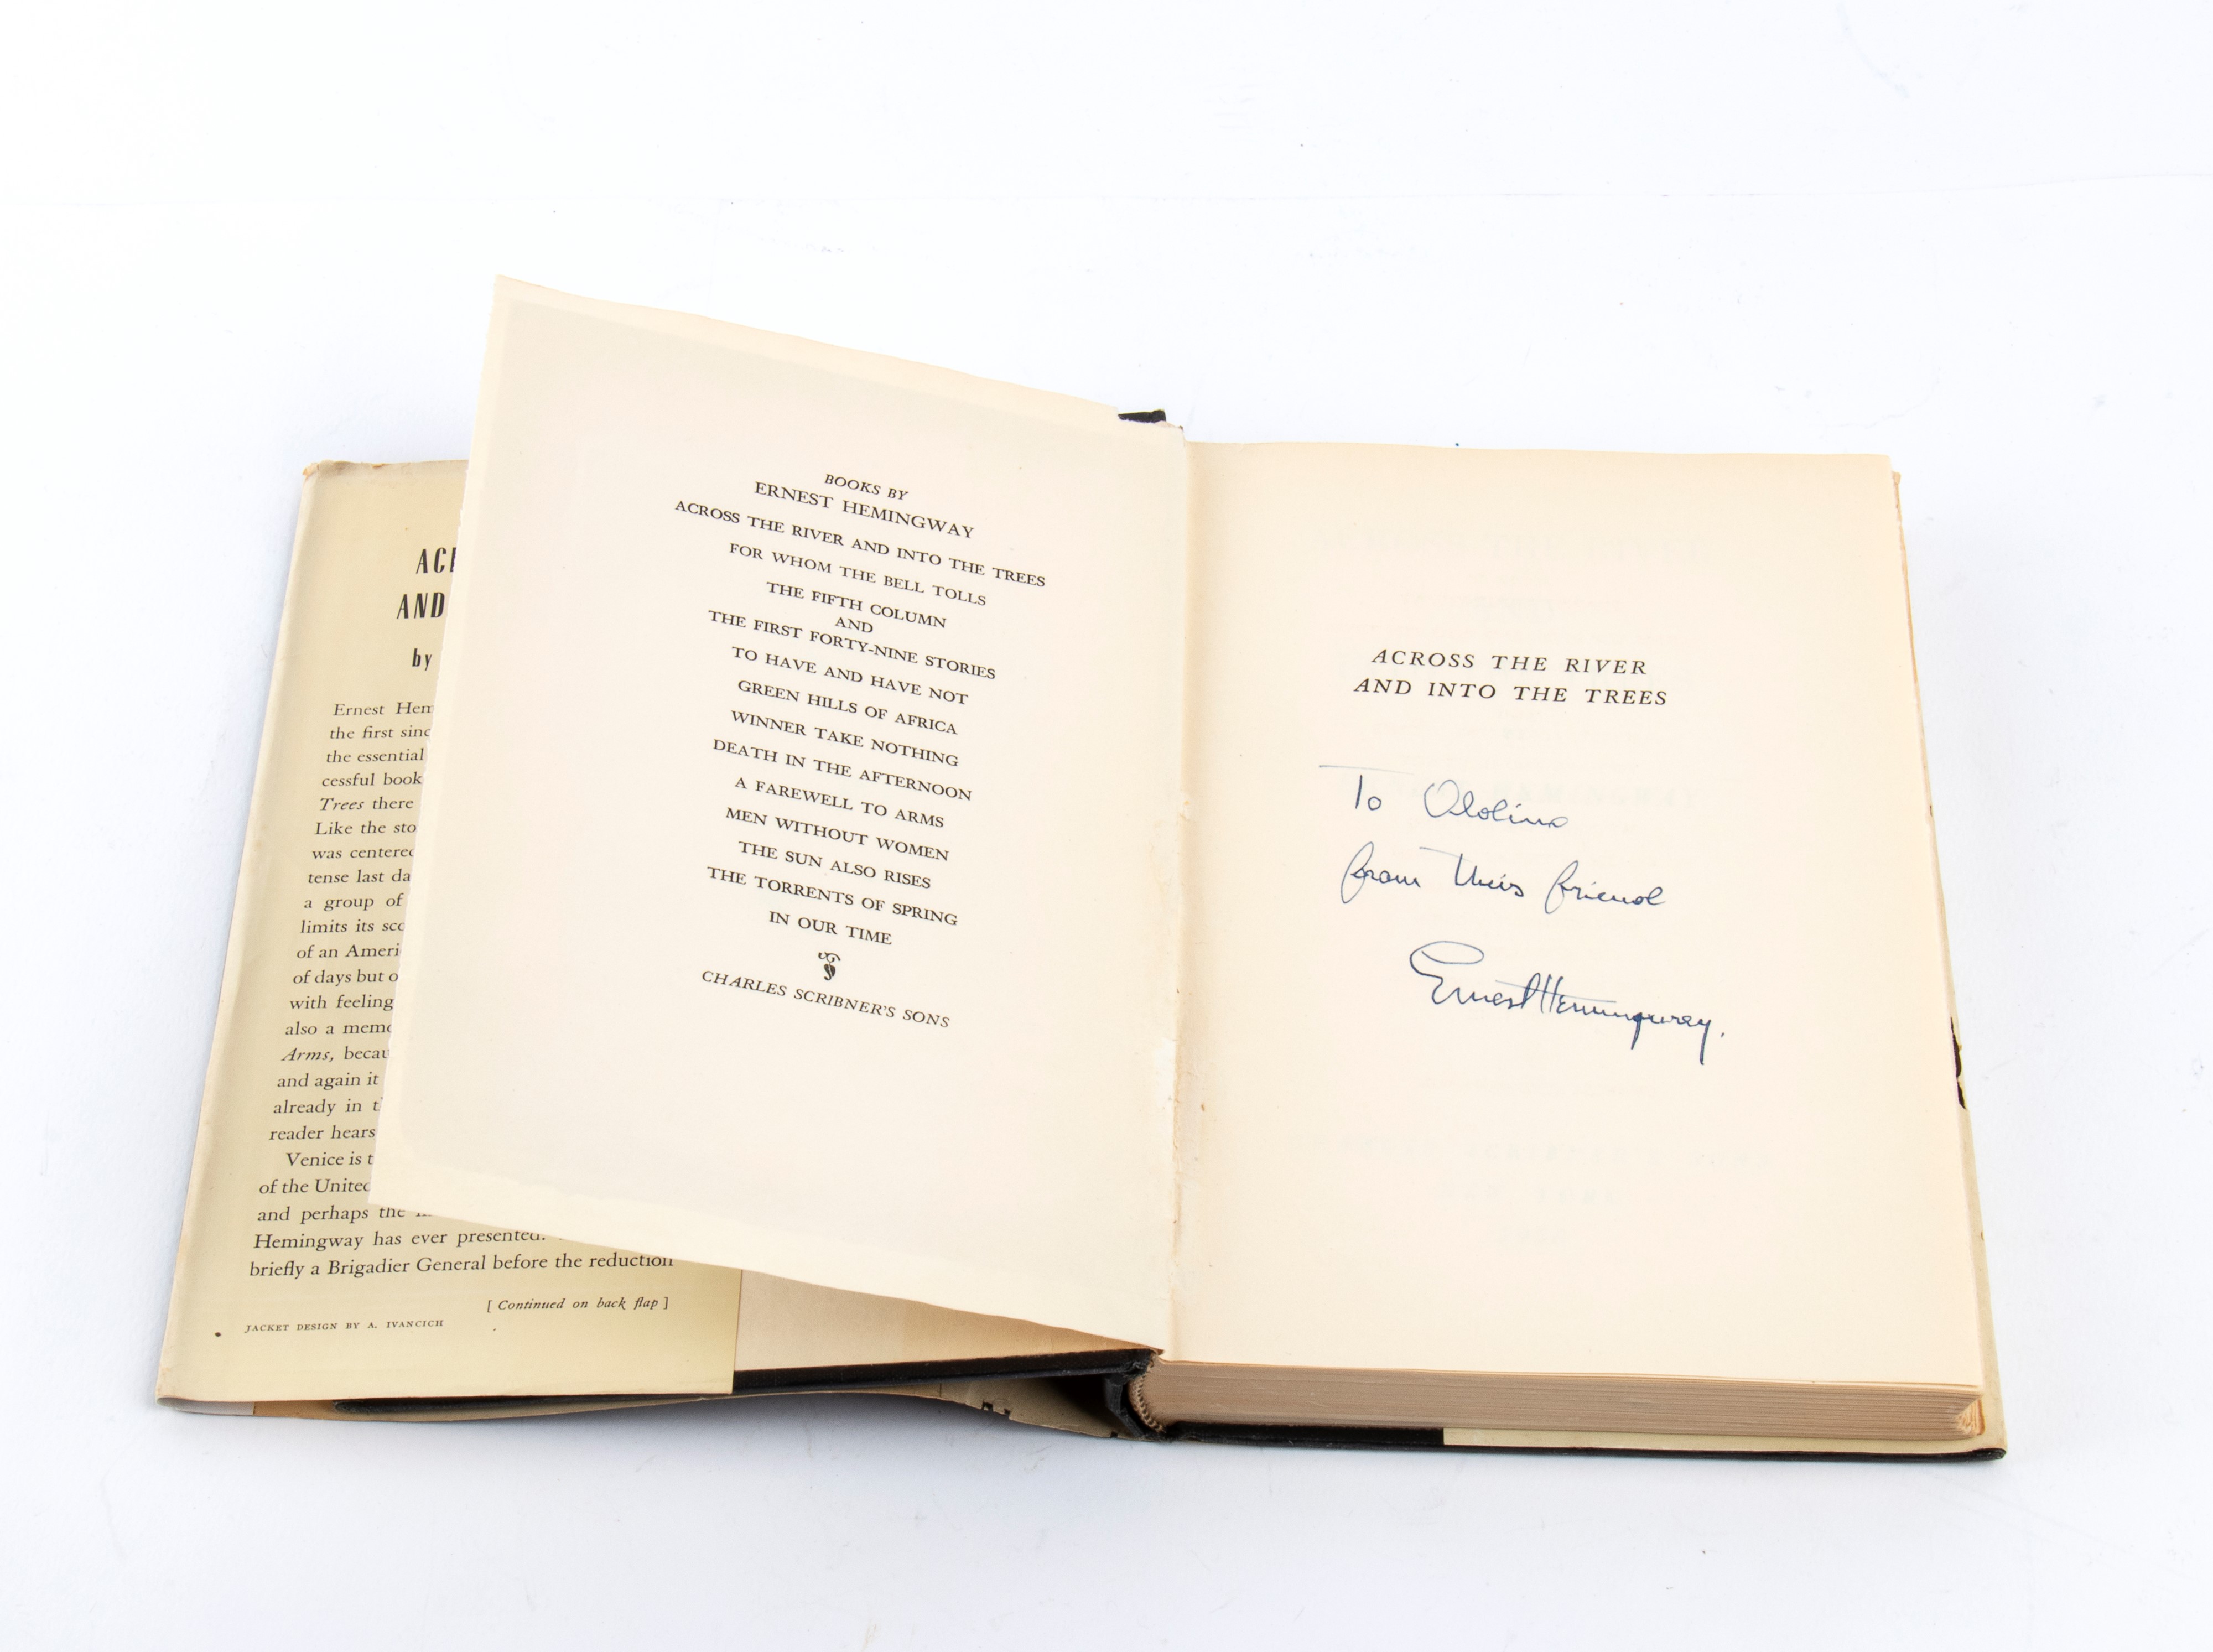 ACR
AND
by
Ernest Hem
the first sinc
the essential
cessful book
Trees there
Like the sto
was centered
tense last da
a group of
limits its sco
of an Ameri
of days but o
with feeling
also a memo
Arms, becau
and again it
already in t
reader hears
Venice is t
of the United
and perhaps the
Hemingway has ever presented.
briefly a Brigadier General before the reduction
[ Continued on back flap ]
JACKET DESIGN BY A. IVANCICH
BOOKS BY
ERNEST HEMINGWAY
ACROSS THE RIVER AND INTO THE TREES
FOR WHOM THE BELL TOLLS
THE FIFTH COLUMN
AND
THE FIRST FORTY-NINE STORIES
TO HAVE AND HAVE NOT
GREEN HILLS OF AFRICA
WINNER TAKE NOTHING
DEATH IN THE AFTERNOON
A FAREWELL TO ARMS
MEN WITHOUT WOMEN
THE SUN ALSO RISES
THE TORRENTS OF SPRING
IN OUR TIME
CHARLES SCRIBNER'S SONS
ACROSS THE RIVER
AND INTO THE TREES
To
from friend
Ernest Hemingway.